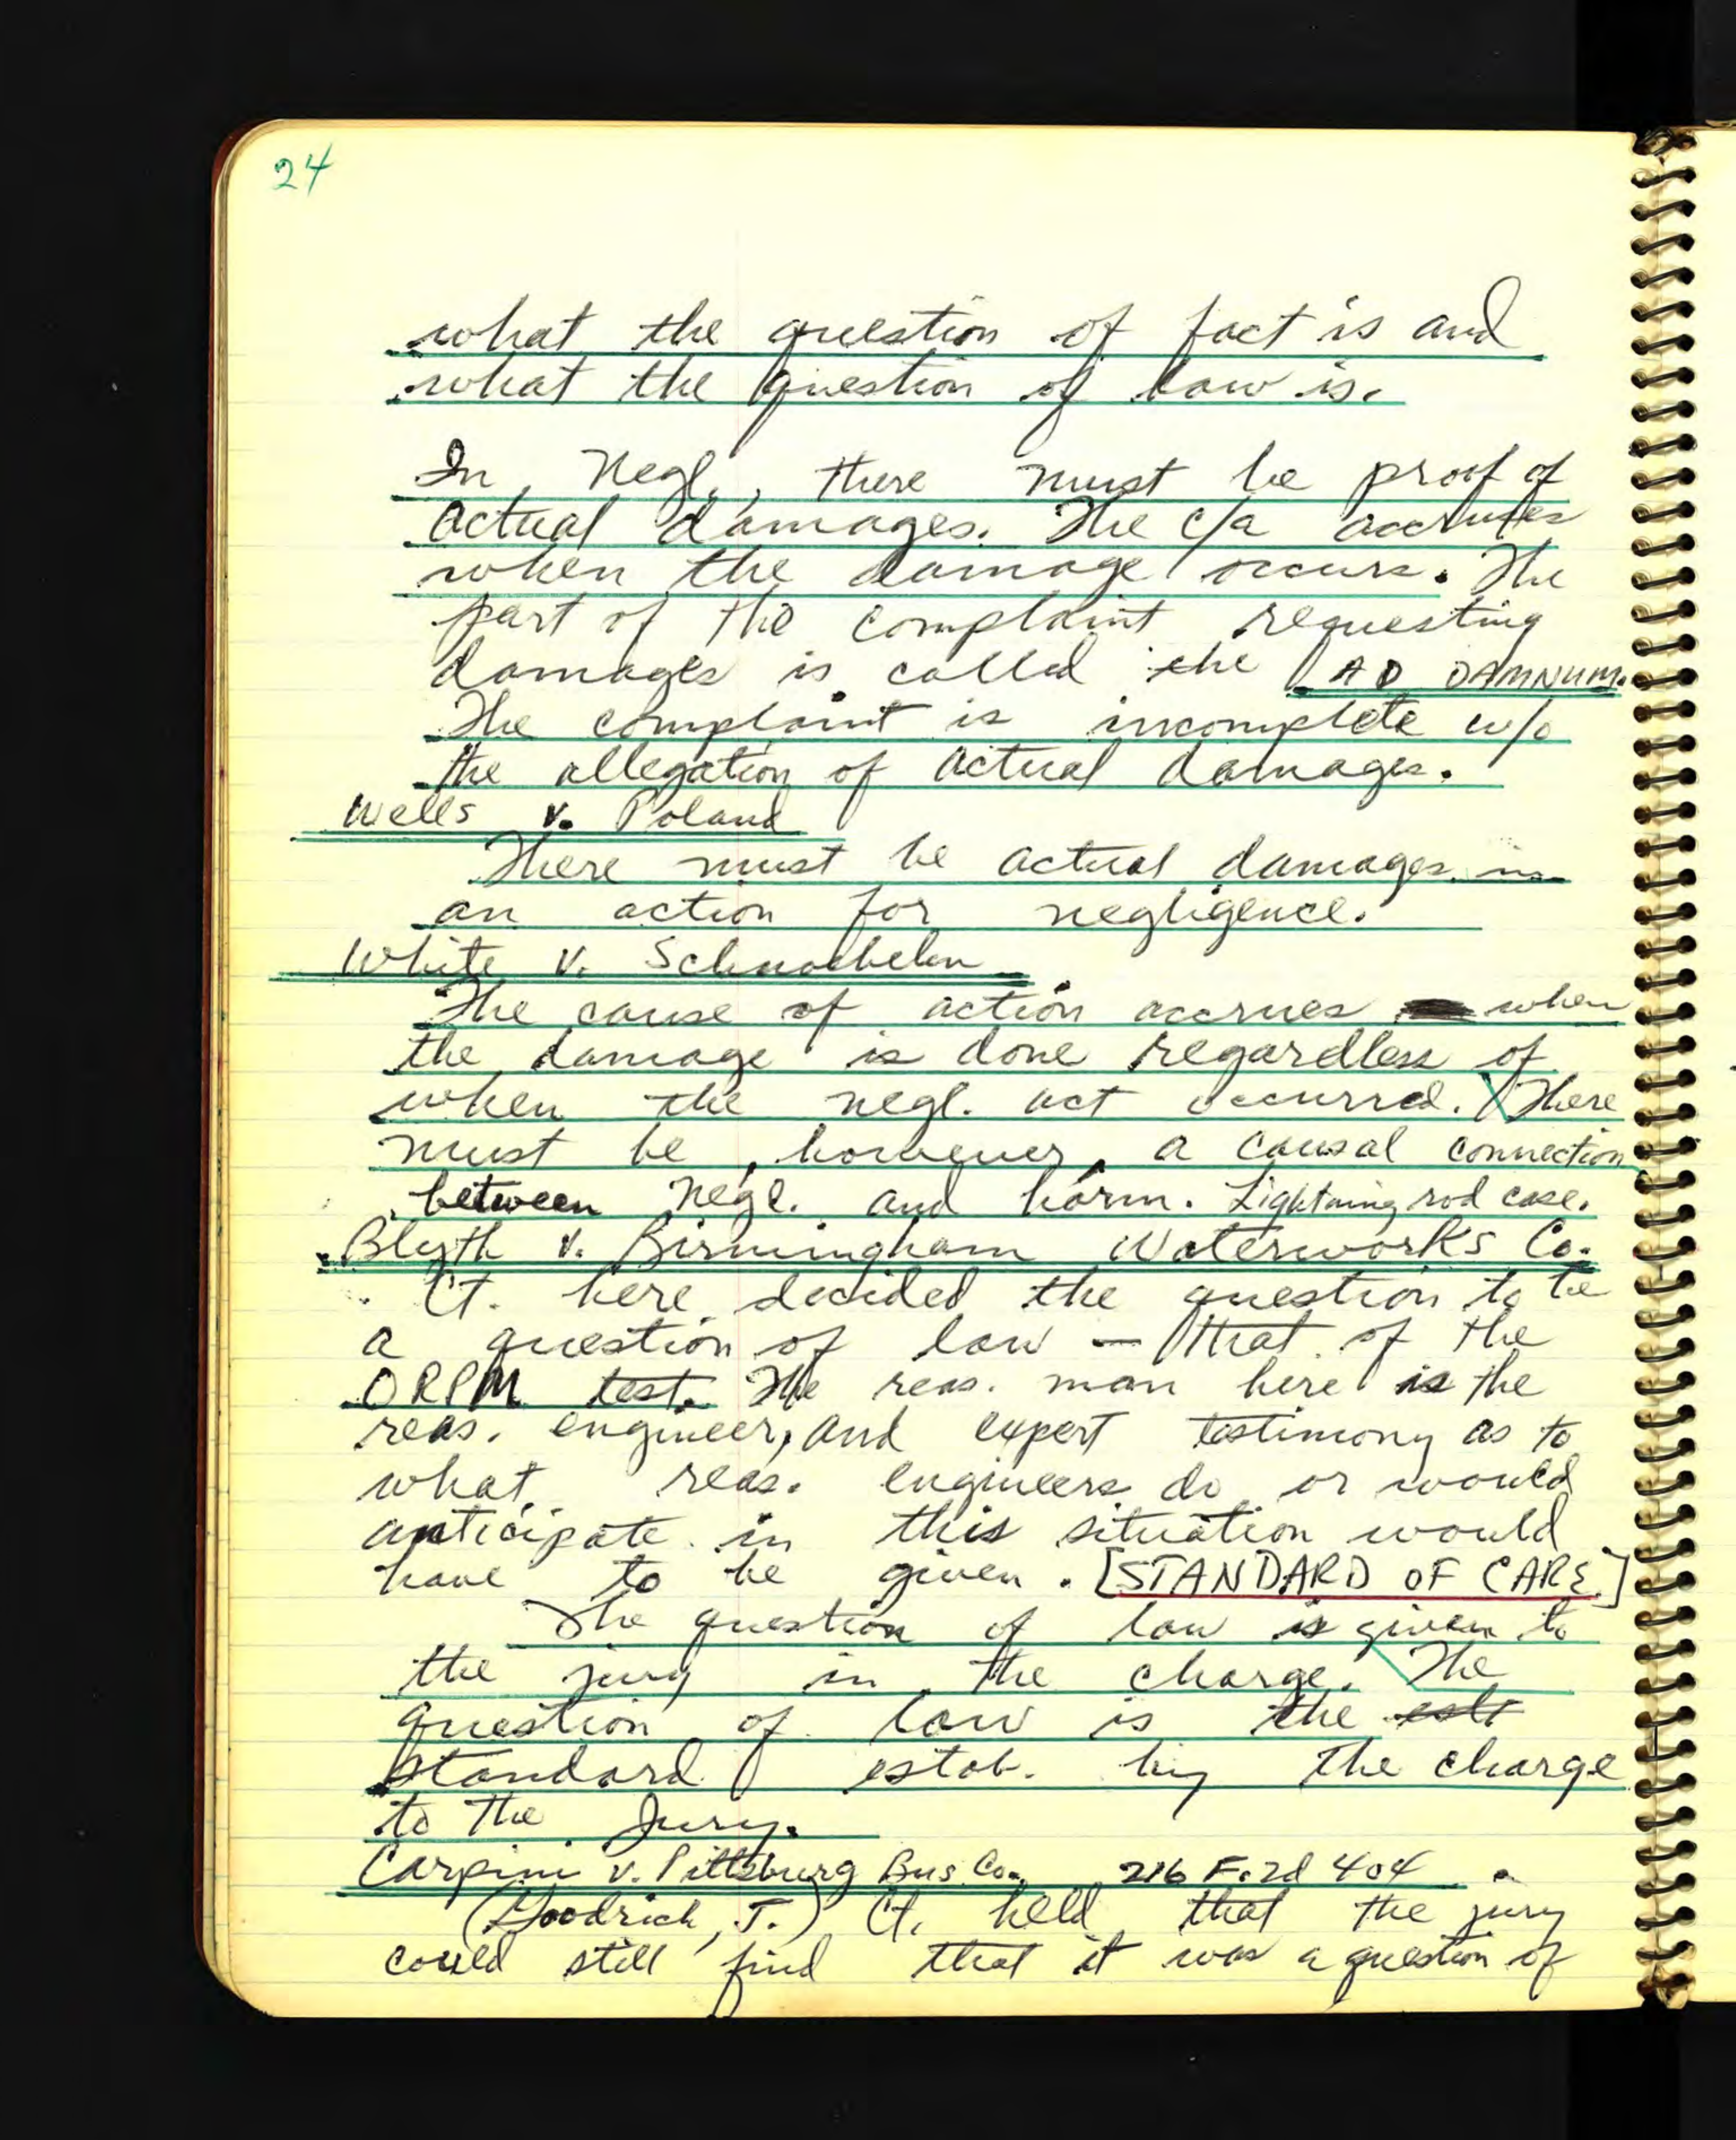 24
what the question of fact is and
what the question of law is.
In Negl., there must be proof of
actual damages. The c/a accrues
when the damage occurs. The
part of the complaint requesting
damages is called the AD DAMNUM.
The complaint is incomplete w/o
the allegation of actual damages.
Wells v. Poland
There must be actual damages in
an action for negligence.
White v. Schnoebelen
The cause of action accrues when
the damage is done regardless of
when the negl. act occurred. There
must be, however, a causal connection
between negl. and harm. Lightning rod case.
Blyth v. Birmingham Waterworks Co.
Ct. here decided the question to be
a question of law — that of the
ORPM test. The reas. man here is the
reas. engineer, and expert testimony as to
what reas. engineers do or would
anticipate in this situation would
have to be given. [STANDARD OF CARE.]
The question of law is given to
the jury in the charge. The
question of law is the
standard estab. by the charge
to the Jury.
Carpini v. Pittsburg Bus Co. 216 F.2d 404
(Goodrich, J.) Ct. held that the jury
could still find that it was a question of